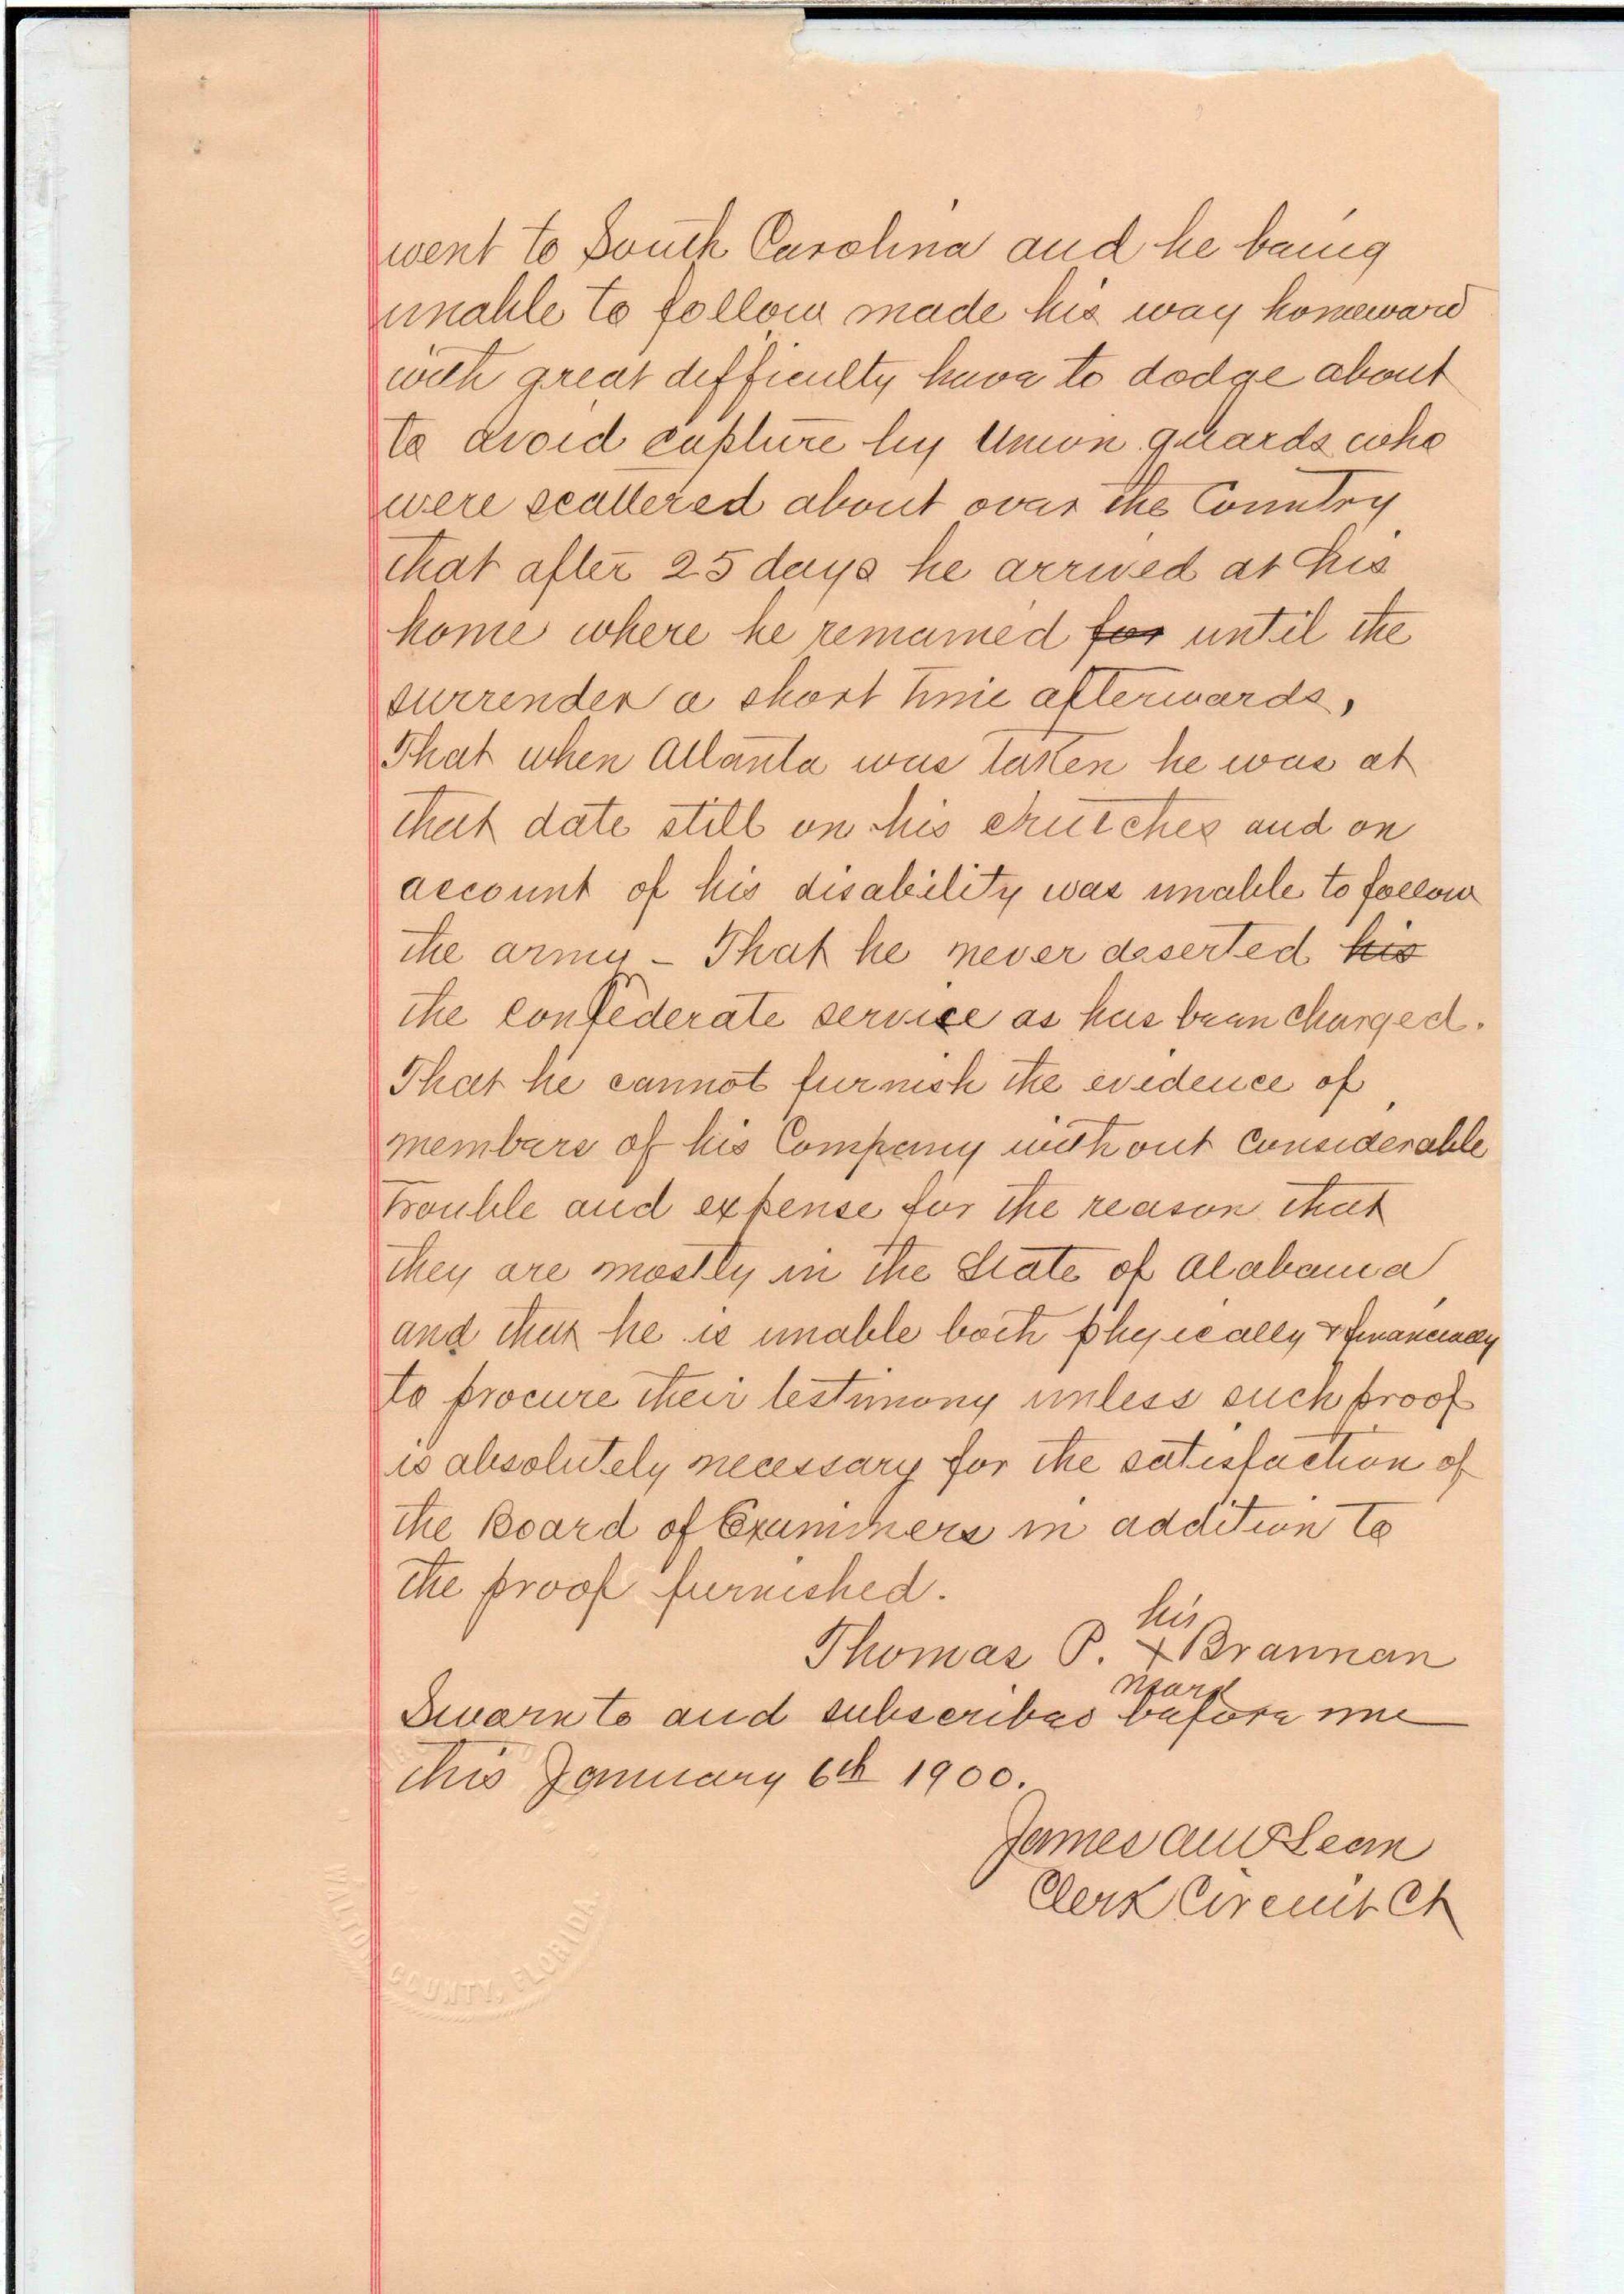 went to South Carolina and he being
unable to follow made his way homeward
with great difficulty have to dodge about
to avoid capture by Union guards who
were scattered about over the Country
that after 25 days he arrived at his
home where he remained for until the
surrender a short time afterwards,
That when Atlanta was taken he was at
that date still on his crutches and on
account of his disability was unable to follow
the army – That he never deserted his
the confederate service as has been charged.
That he cannot furnish the evidence of
members of his Company without considerable
trouble and expense for the reason that
they are mostly in the State of Alabama
and that he is unable both physically & financially
to procure their testimony unless such proof
is absolutely necessary for the satisfaction of
the Board of Examiners in addition to
the proof furnished.
his
Thomas P. X Brannan
mark
Sworn to and subscribed before me
this January 6th 1900.
James McLean
Clerk Circuit Ct
WALTON COUNTY, FLORIDA.